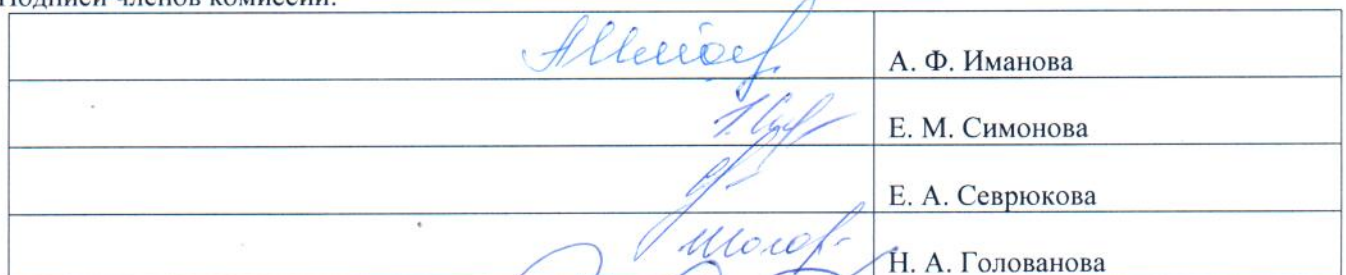 Подписи членов комиссии:
А. Ф. Иманова
Е. М. Симонова
Е. А. Севрюкова
Н. А. Голованова